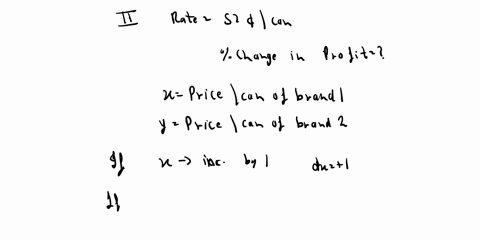 II Rate = 52 ¢ \ can
% Change in Profit = ?
x = Price \ can of brand 1
y = Price \ can of brand 2
If x → inc. by 1 dx = +1
If